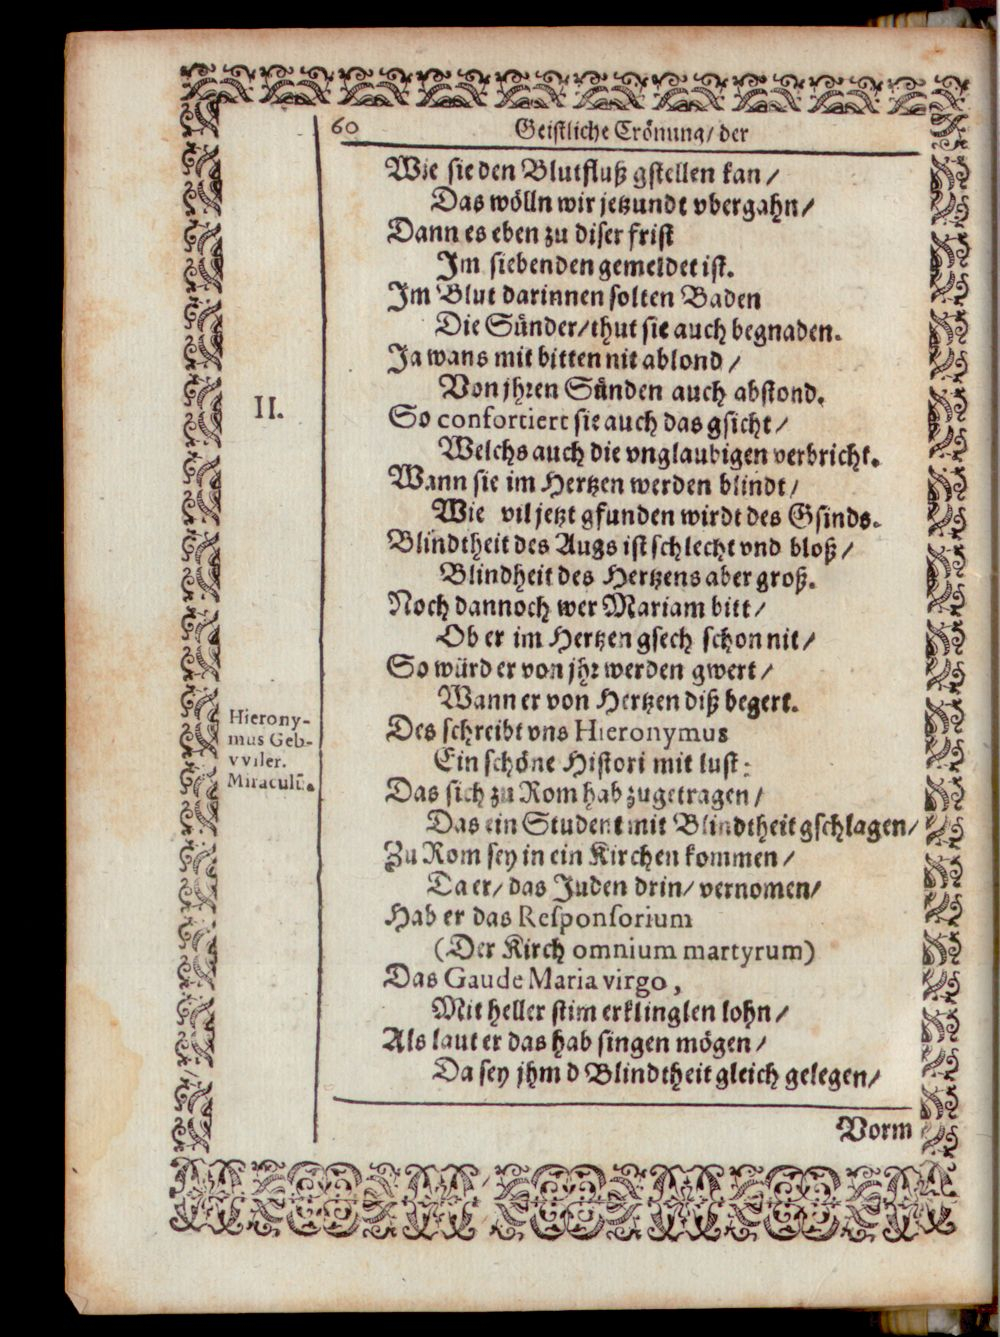 60 Geistliche Crönung/ der
Wie sie den Blutfluß gstellen kan/
Das wölln wir jetzundt vbergahn/
Dann es eben zu diser frist
Im siebenden gemeldet ist.
Im Blut darinnen solten Baden
Die Sünder/ thut sie auch begnaden.
Ja wans mit bitten nit ablond/
Von jhren Sünden auch abstond.
II.
So confortiert sie auch das gsicht/
Welchs auch die vnglaubigen verbricht.
Wann sie im Hertzen werden blindt/
Wie vil jetzt gfunden wirdt des Gsinds.
Blindtheit des Augs ist schlecht vnd bloß/
Blindheit des Hertzens aber groß.
Noch dannoch wer Mariam bitt/
Ob er im Hertzen gsech schon nit/
So würd er von jhr werden gwert/
Wann er von Hertzen diß begert.
Hierony-
mus Geb-
vviler.
Miraculũ.
Des schreibt vns Hieronymus
Ein schöne Histori mit lust:
Das sich zu Rom hab zugetragen/
Das ein Student mit Blindtheit gschlagen/
Zu Rom sey in ein Kirchen kommen/
Da er/ das Juden drin/ vernomen/
Hab er das Responsorium
(Der Kirch omnium martyrum)
Das Gaude Maria virgo,
Mit heller stim erklinglen lohn/
Als laut er das hab singen mögen/
Da sey jhm d Blindtheit gleich gelegen/
Vorm